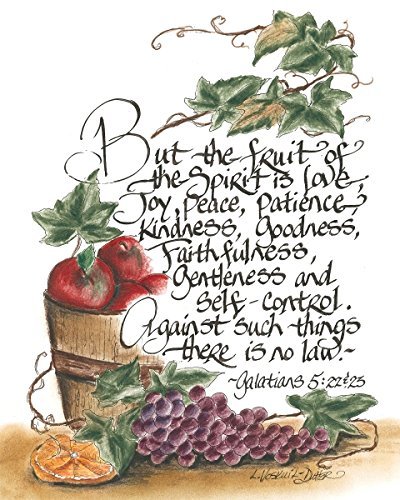 But the fruit of
the Spirit is love,
Joy, peace, patience,
kindness, goodness,
Faithfulness,
gentleness and
self-control.
Against such things
there is no law.~
~Galatians 5:22&23